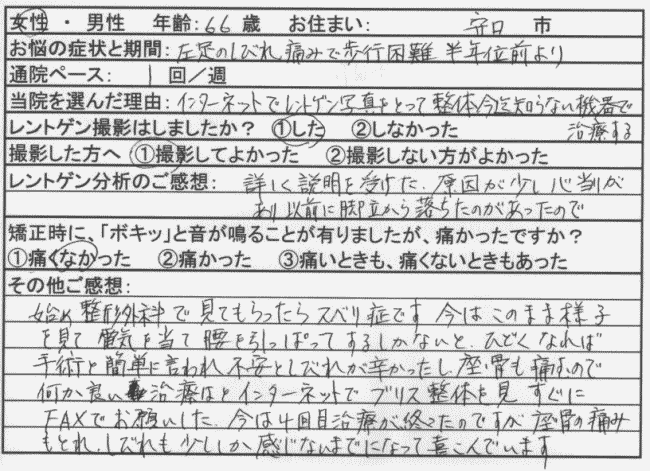 女性 ・ 男性 年齢：66 歳 お住まい： 守口 市
お悩の症状と期間：左足のしびれ痛みで歩行困難 半年位前より
通院ペース： 1 回／週
当院を選んだ理由：インターネットでレントゲン写真をとって整体今迄知らない機器で
治療する
レントゲン撮影はしましたか？ ①した ②しなかった
撮影した方へ ①撮影してよかった ②撮影しない方がよかった
レントゲン分析のご感想： 詳しく説明を受けた、原因が少し心当が
あり以前に脚立から落ちたのがあったので
矯正時に、「ボキッ」と音が鳴ることが有りましたが、痛かったですか？
①痛くなかった ②痛かった ③痛いときも、痛くないときもあった
その他ご感想：
始め整形外科で見てもらったらスベリ症です 今はこのまま様子
を見て 電気を当て 腰を引っぱってするしかないと、ひどくなれば
手術と簡単に言われ 不安としびれが辛かったし 座骨も痛むので
何か良い治療はとインターネットで プリス整体を見 すぐに
FAXでお願いした、今は4回目治療が終ったのですが 座骨の痛み
もとれ、しびれも少ししか感じないまでになって喜こんでいます